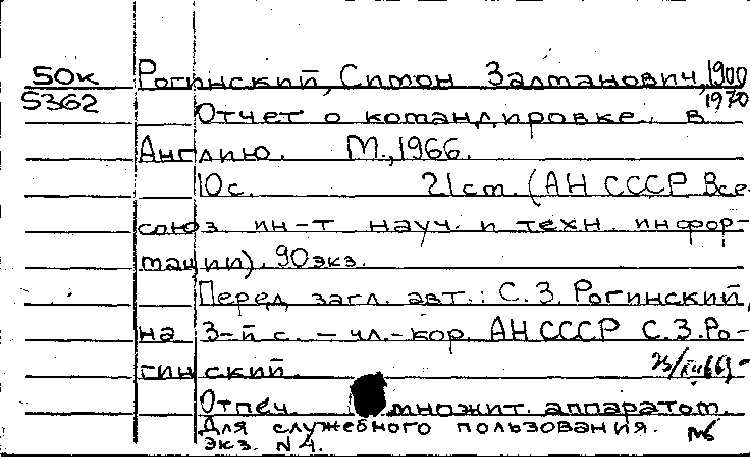 50к Рогинский, Симон Залманович, 1900
5362 1970
Отчет о командировке в
Англию. М., 1966.
10 с. 21 см. (АН СССР Все-
союз. ин-т науч. и техн. инфор-
мации). 90 экз.
Перед загл. авт.: С. З. Рогинский,
на 3-й с. – чл.-кор. АН СССР С. З. Ро-
гинский.
Отпеч. множит. аппаратом.
Для служебного пользования.
экз. N 4.